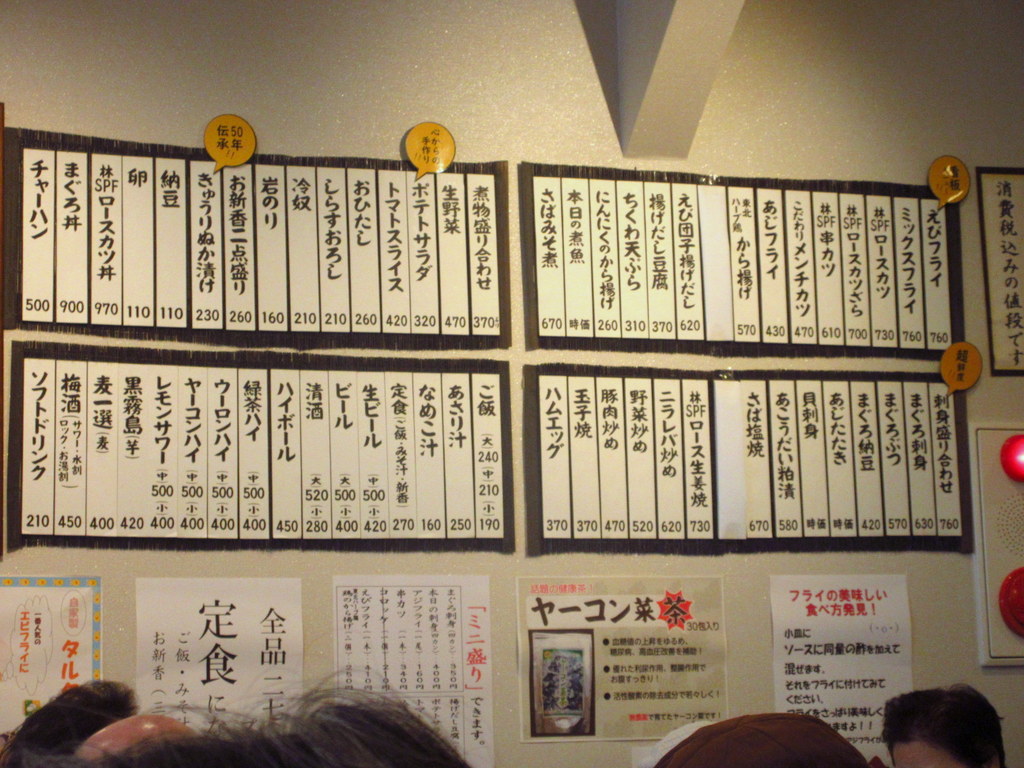 超鮮度
えびフライ 760
ミックスフライ 760
林SPFロースカツ 730
林SPFロースカツざら 700
林SPF串カツ 610
こだわりメンチカツ 470
あじフライ 430
東北ハーブ鶏から揚げ 570
えび団子揚げだし 620
揚げだし豆腐 370
ちくわ天ぷら 310
にんにくのから揚げ 260
本日の煮魚 時価
さばみそ煮 670
心からの手作り!!
煮物盛り合わせ 370
生野菜 470
ポテトサラダ 320
トマトスライス 420
おひたし 260
しらすおろし 210
冷奴 210
岩のり 160
50年伝承!!
お新香二点盛り 260
きゅうりぬか漬け 230
納豆 110
卵 110
林SPFロースカツ丼 970
まぐろ丼 900
チャーハン 500
刺身盛り合わせ 760
まぐろ刺身 630
まぐろぶつ 570
まぐろ納豆 420
あじたたき 時価
貝刺身 時価
あこうだい粕漬 580
さば塩焼 670
林SPFロース生姜焼 730
ニラレバ炒め 620
野菜炒め 520
豚肉炒め 470
玉子焼 370
ハムエッグ 370
ご飯 (大)240 (中)210 (小)190
あさり汁 250
なめこ汁 160
定食(ご飯・みそ汁・新香) 270
生ビール (中)500 (小)420
ビール (大)500 (小)400
清酒 (大)520 (小)280
ハイボール 450
緑茶ハイ (中)500 (小)400
ウーロンハイ (中)500 (小)400
ヤーコンハイ (中)500 (小)400
レモンサワー (中)500 (小)400
黒霧島(芋) 420
麦一選(麦) 400
梅酒(サワー・水割 ロック・お湯割) 450
ソフトドリンク 210
消費税込みの値段です
自家製
タル
一番人気の
エビフライに
全品 二十
定食にな
ご飯・みそ汁
お新香(三
「ミニ盛り」できます。
まぐろ刺身
本日の刺身
アジフライ
串カツ
コロッケ
えびフライ
鶏のから揚げ
話題の健康茶!
ヤーコン菜茶
30包入り
●血糖値の上昇をゆるめ、
糖尿病、高血圧改善を補助!
●優れた利尿作用、整腸作用で
お腹すっきり!
●活性酸素の除去成分で若々しく!
無農薬で育てたヤーコン菜です!
フライの美味しい
食べ方発見!
小皿に
ソースに同量の酢を加えて
混ぜます。
それをフライに付けてみて
ください。
フライをさっぱり美味しく